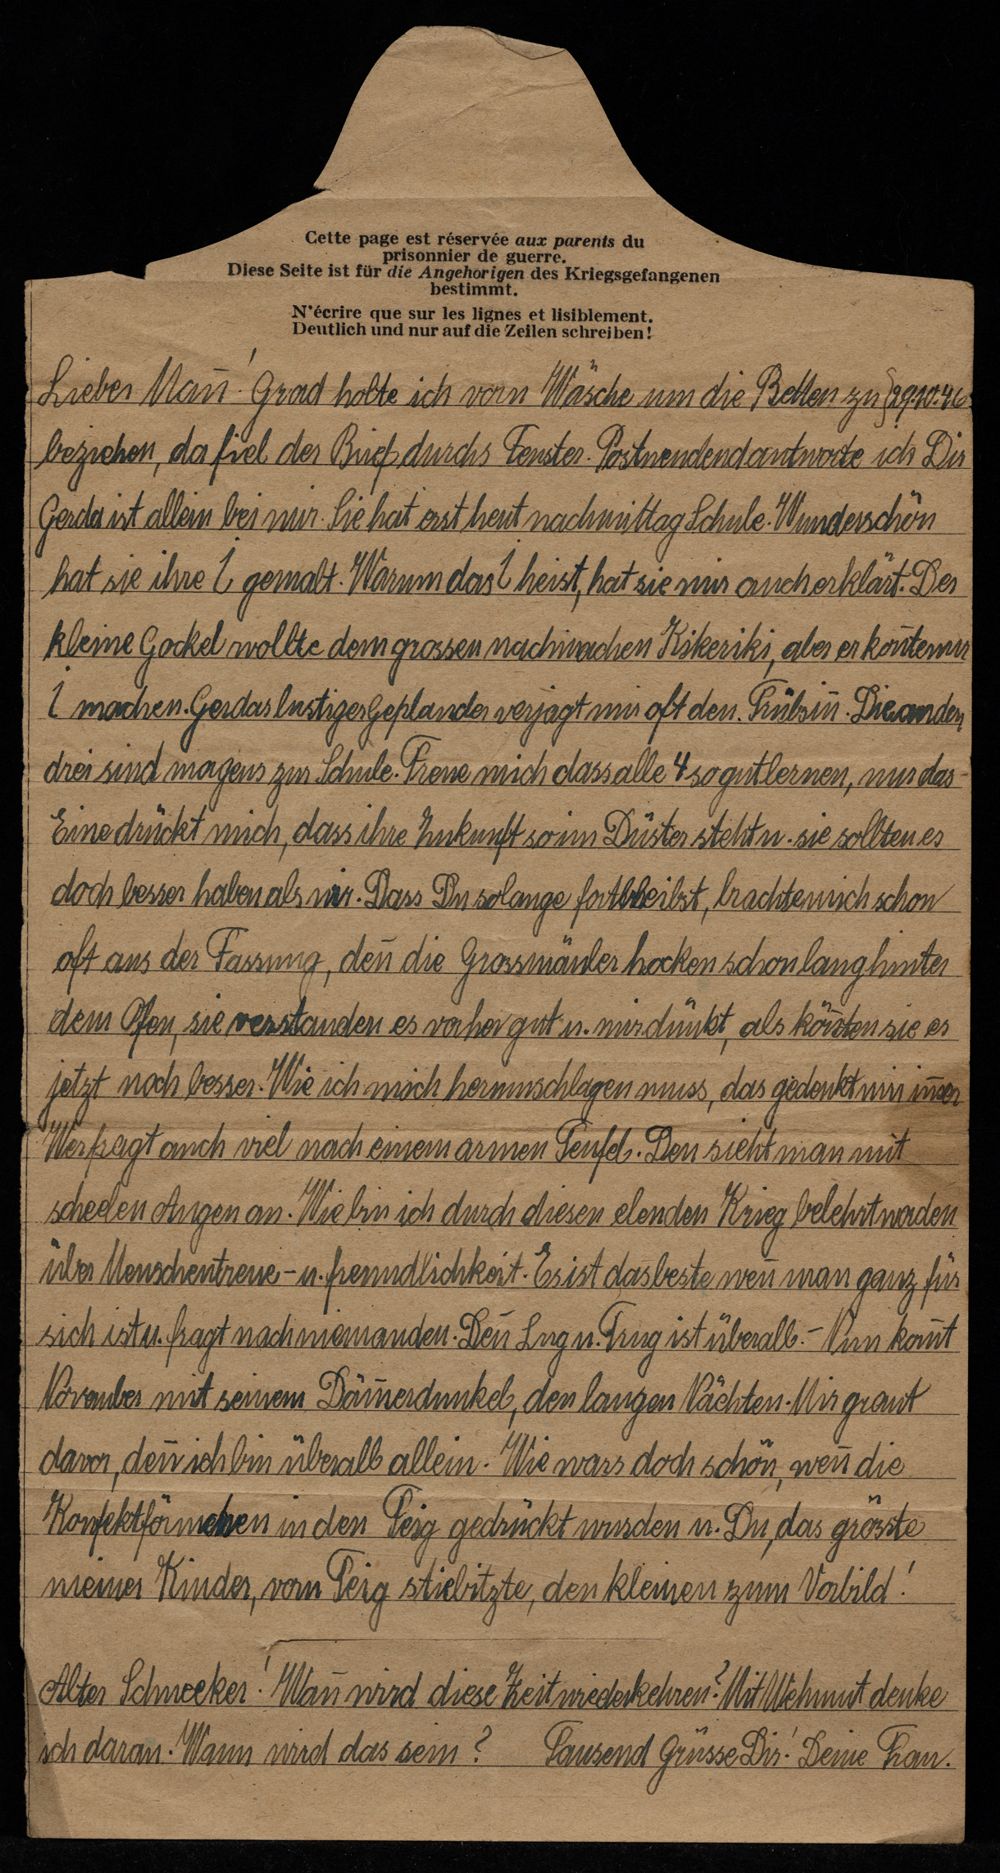 Cette page est réservée aux parents du
prisonnier de guerre.
Diese Seite ist für die Angehörigen des Kriegsgefangenen
bestimmt.
N'écrire que sur les lignes et lisiblement.
Deutlich und nur auf die Zeilen schreiben!
Lieber Mañ! Grad holte ich vorn Wäsche um die Betten zu 29.10.46
beziehen, da fiel der Brief durchs Fenster. Postwendend antworte ich Dir
Gerda ist allein bei mir. Sie hat erst heut nachmittag Schule. Wunderschön
hat sie ihre i gemalt. Warum das i heist, hat sie mir auch erklärt. Der
kleine Gockel wollte dem grossen nachmachen Kikeriki, aber er koñte nur
i machen. Gerdas lustiger Geplauder verjagt mir oft den Trübsiñ. Die anden
drei sind morgens zur Schule. Freue mich dass alle 4 so gut lernen, nur das
Eine drückt mich, dass ihre Zukunft so im Düster steht u. sie sollten es
doch besser haben als wir. Dass Du solange fortbleibst, brachte mich schon
oft aus der Fassung, deñ die Grossmäuler hocken schon lang hinter
dem Ofen, sie verstanden es vorher gut u. mir dünkt, als köñten sie es
jetzt noch besser. Wie ich mich herumschlagen muss, das gedenkt mir im̃er
Wer fragt auch viel nach einem armen Teufel. Den sieht man mit
scheelen Augen an. Wie bin ich durch diesen elenden Krieg belehrt worden
über Menschentreue- u. freundlichkeit. Es ist das beste weñ man ganz für
sich ist u. fragt nach niemanden. Deñ Lug u. Trug ist überall. - Nun kom̃t
November mit seinem Däm̃erdunkel, den langen Nächten. Mir graut
davor, deñ ich bin überall allein. Wie wars doch schön, weñ die
Konfektförmchen in den Teig gedrückt wurden u. Du, das grösste
meiner Kinder, vom Teig stiebitzte, den kleinen zum Vorbild!
Alter Schmecker! Wañ wird diese Zeit wiederkehren? Mit Wehmut denke
ich daran. Wann wird das sein? Tausend Grüsse Dir! Deine Frau.